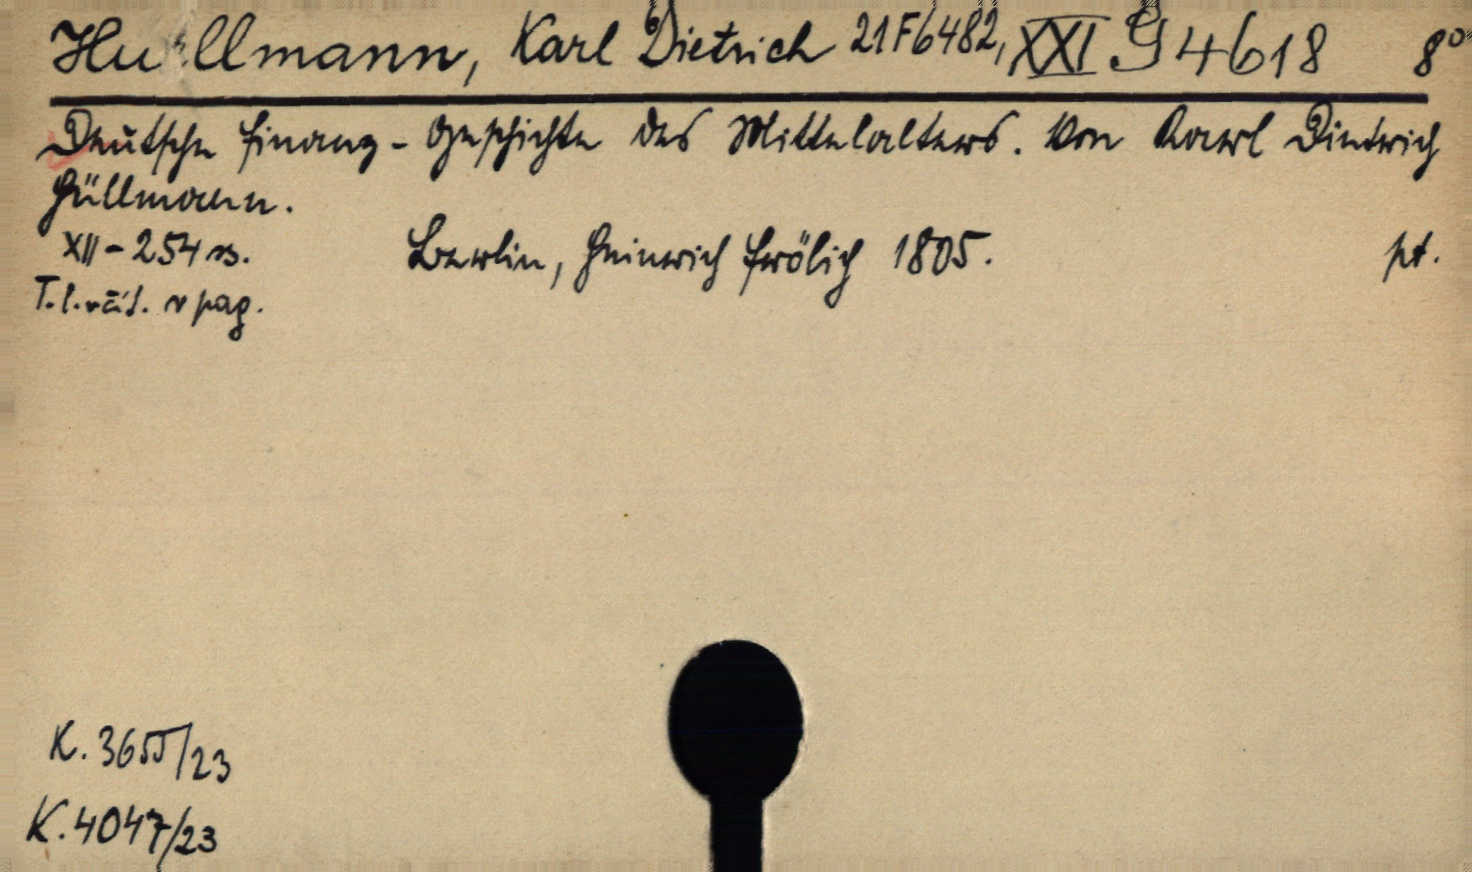 Huellmann, Karl Dietrich 21F6482, XXI G 4618 8°
Deutsche Finanz-Geschichte des Mittelalters. Von Karl Dietrich
Hüllmann.
XII-254 s. Berlin, Heinrich Frölich 1805. pt.
T.l.včít. v pag.
K.3655/23
K.4047/23